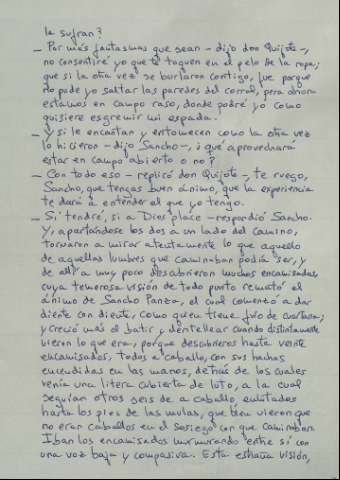 la sufran?
— Por más fantasmas que sean - dijo don Quijote -,
no consentiré yo que te toquen en el pelo de la ropa;
que si la otra vez se burlaron contigo, fue porque
no pude yo saltar las paredes del corral, pero ahora
estamos en campo raso, donde podré yo como
quisiere esgremir mi espada.
— Y si le encantan y entomecen como la otra vez
lo hicieron - dijo Sancho -, ¿qué aprovechará
estar en campo abierto o no?
— Con todo eso - replicó don Quijote -, te ruego,
Sancho, que tengas buen ánimo, que la experiencia
te dará a entender el que yo tengo.
— Sí tendré, si a Dios place - respondió Sancho.
Y, apartándose los dos a un lado del camino,
tornaron a mirar atentamente lo que aquello
de aquellas lumbres que caminaban podía ser, y
de allí a muy poco descubrieron muchos encamisados,
cuya temerosa visión de todo punto remató el
ánimo de Sancho Panza, el cual comenzó a dar
diente con diente, como quien tiene frío de cuartana;
y creció más el batir y dentellear cuando distintamente
vieron lo que era, porque descubrieron hasta veinte
encamisados, todos a caballo, con sus hachas
encendidas en las manos, detrás de los cuales
venía una litera cubierta de luto, a la cual
seguían otros seis de a caballo, enlutados
hasta los pies de las mulas, que bien vieron que
no eran caballos en el sosiego con que caminaban.
Iban los encamisados murmurando entre sí con
una voz baja y compasiva. Esta estraña visión,